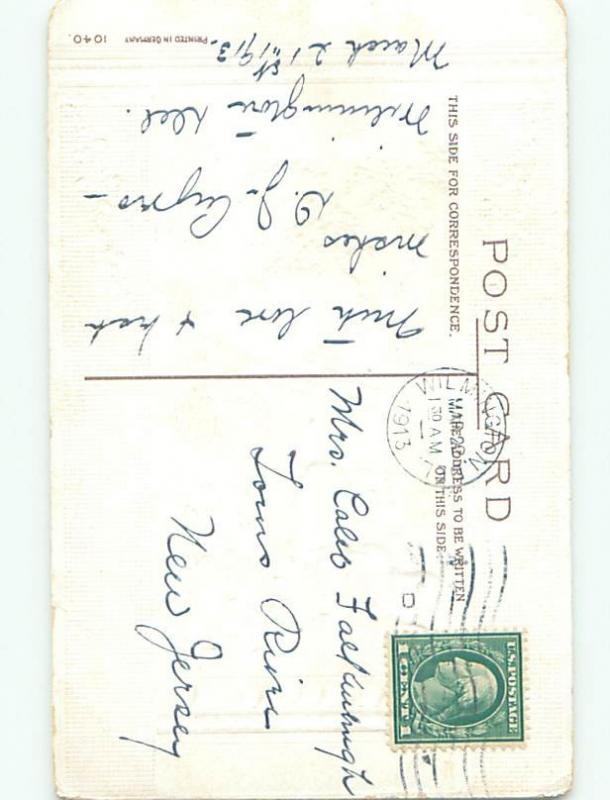 POST CARD
THIS SIDE FOR CORRESPONDENCE.
THE ADDRESS TO BE WRITTEN
ON THIS SIDE
WILMINGTON
MAR 20
1 30 AM
1913
D
U.S. POSTAGE
1 CENT 1
With love & best
wishes
Wilmington Del.
March 21st 1913.
Mrs. Caleb Falkinburgh
Toms River
New Jersey
1040.
PRINTED IN GERMANY